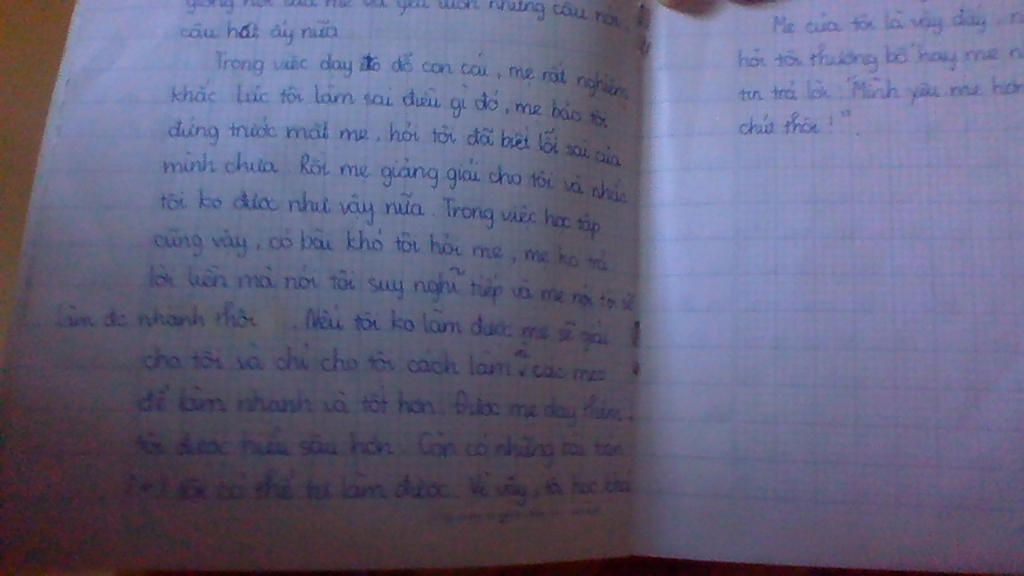 giọng nói của mẹ và yêu luôn những câu nói,
câu hát ấy nữa
Trong việc dạy dỗ con cái, mẹ rất nghiêm
khắc. Lúc tôi làm sai điều gì đó, mẹ bảo tôi
đứng trước mặt mẹ, hỏi tôi đã biết lỗi sai của
mình chưa. Rồi mẹ giảng giải cho tôi và nhắc
tôi ko được như vậy nữa. Trong việc học tập
cũng vậy, có bài khó tôi hỏi mẹ, mẹ ko trả
lời liền mà nói tôi suy nghĩ tiếp và mẹ nói sẽ
làm đc nhanh thôi. Nếu tôi ko làm được mẹ sẽ giải
cho tôi và chỉ cho tôi cách làm, các mẹo
để làm nhanh và tốt hơn. Được mẹ dạy thêm,
tôi được hiểu sâu hơn. Còn có những bài toán
tôi có thể tự làm được. Vì vậy, học
Mẹ của tôi là vậy đấy,
hỏi tôi thương bố hay mẹ
tin trả lời: "Mình yêu mẹ hơn
chứ thôi!".